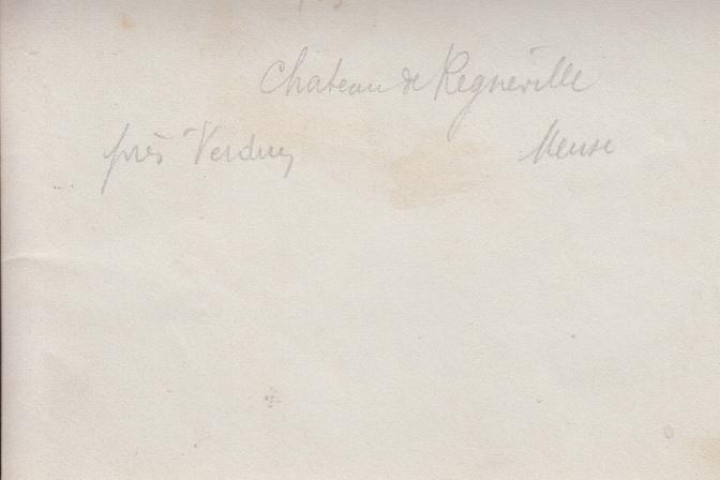 Chateau de Regnéville
près Verdun Meuse